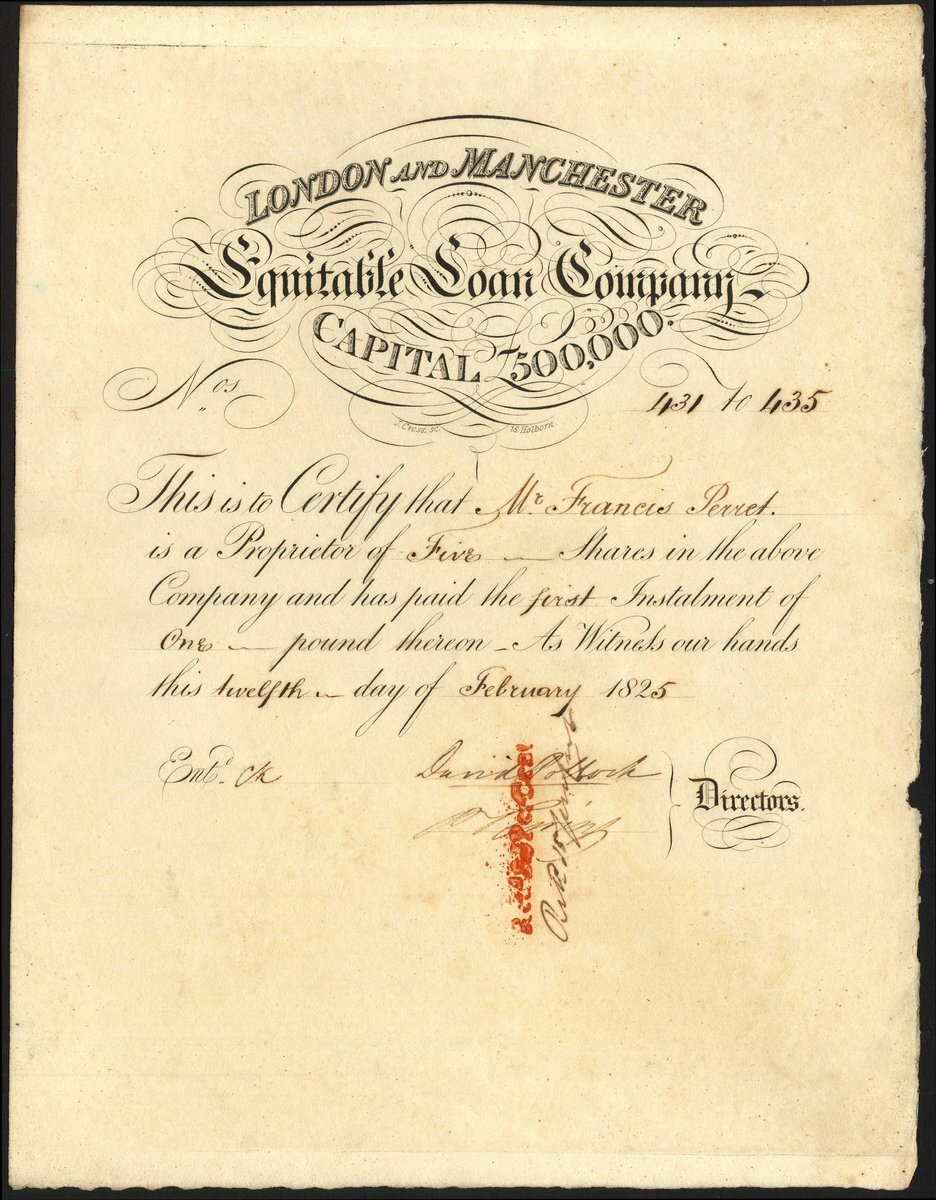 LONDON AND MANCHESTER
Equitable Loan Company
CAPITAL £500,000.
Nos 431 to 435
J. Cross, sc. 18 Holborn
This is to Certify that Mr Francis Perret.
is a Proprietor of Five Shares in the above
Company and has paid the first Instalment of
One pound thereon - As Witness our hands
this twelfth day of February 1825
Entd. CK David Pollock
Directors.